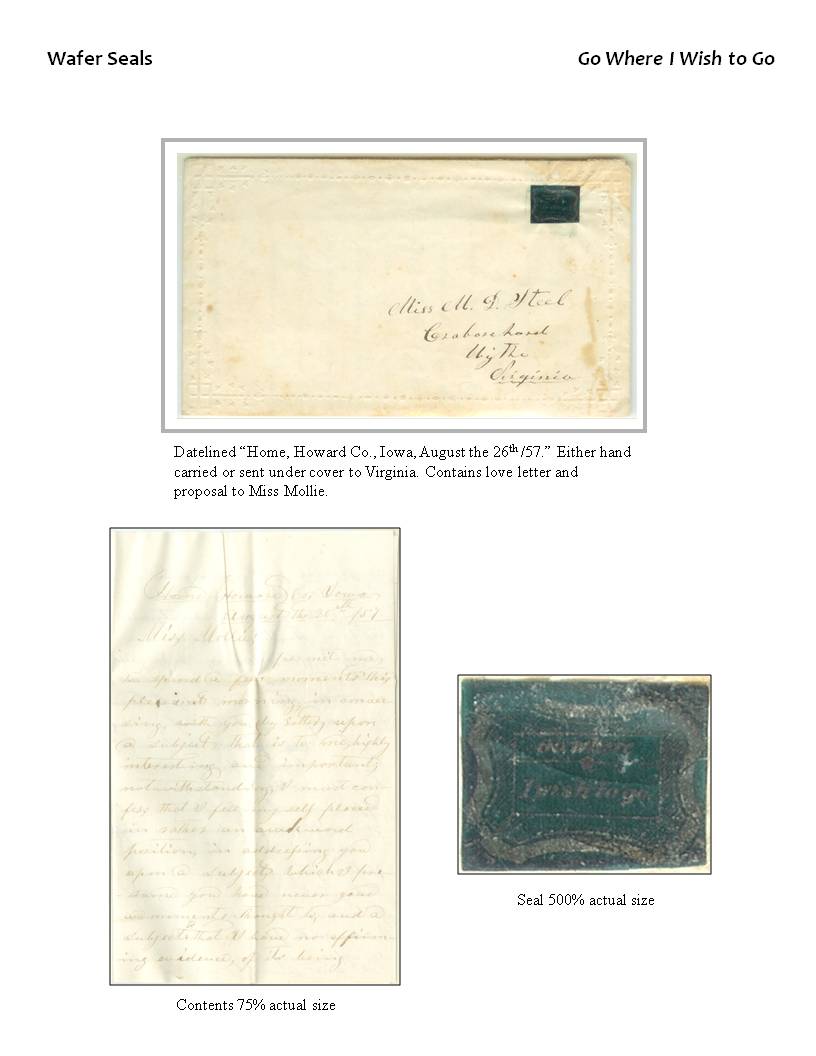 Wafer Seals
Go Where I Wish to Go
Miss M. D. Steel
Wythe
Virginia
Datelined “Home, Howard Co., Iowa, August the 26th/57.” Either hand
carried or sent under cover to Virginia. Contains love letter and
proposal to Miss Mollie.
Home Howard Co, Iowa
August the 26th /57
Miss Mollie
permit me
to spend a few moments this
pleasant morning in
with you by letter, upon
a subject, that is to me, highly
interesting and important,
notwithstanding, I must con-
fess that I feel my self placed
in rather an awkward
position, in addressing you
upon a subject, which I pre-
sume you have never gave
a moments thought to, and a
subject that I have no
evidence, of its being
Seal 500% actual size
Contents 75% actual size